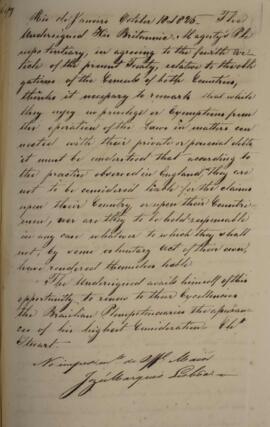 Rio de Janeiro October 18 1825. The
Undersigned His Britannic Majesty's Ple
nipotentiary, in agreeing to the fourth Ar-
ticle of the present Treaty, relative to the obli
gations of the Consuls of both Countries,
thinks it necessary to remark that while
they enjoy no privilege or Exemptions from
the operation of the Laws in matters con
nected with their private or personal debts
it must be understood that according to
the practice observed in England they are
not to be considered liable for the claims
upon their Country or upon their Countri-
men, nor are they to be held responsible
in any case whatever to which they shall
not, by some voluntary act of their own,
have rendered themselves liable
The Undersigned avails himself of this
opportunity to renew to their Excellencies
the Brazilian Plenipotentiaries the assuran
ces of his highest Consideration Chs.
Stuart.
No impedim.to do Off.al Maior
José Marques Lisboa